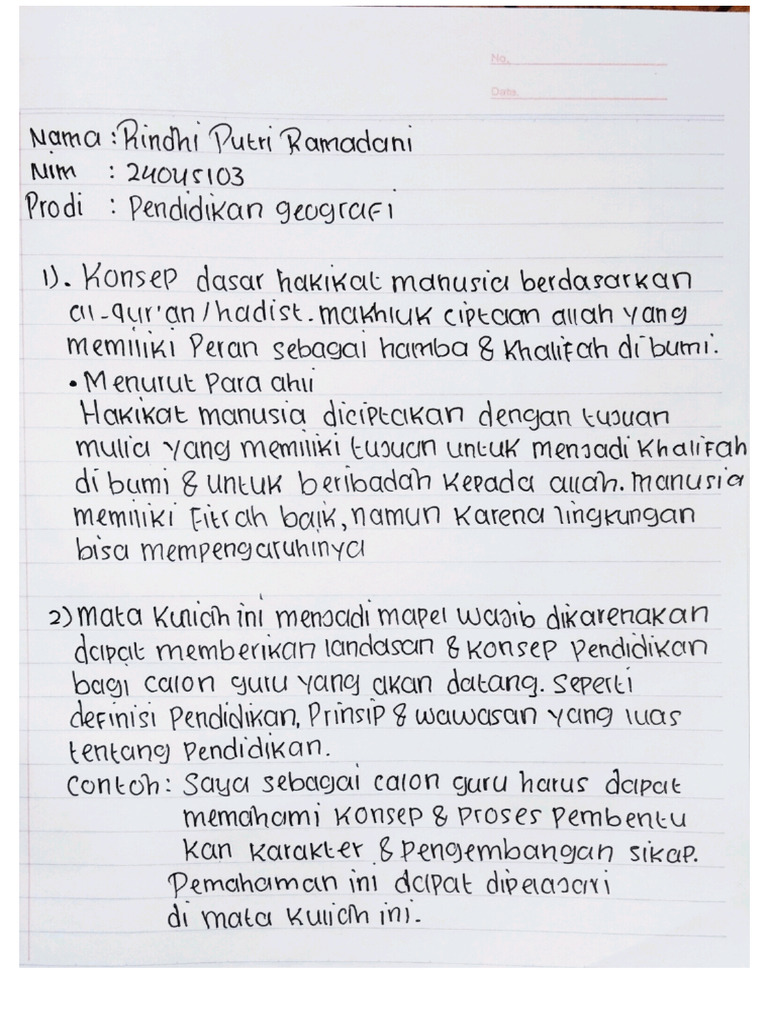 No.
Date.
Nama : Rindhi Putri Ramadani
Nim : 24045103
Prodi : Pendidikan geografi
1). Konsep dasar hakikat manusia berdasarkan
al-qur'an/hadist. makhluk ciptaan allah yang
memiliki Peran sebagai hamba & khalifah di bumi.
• Menurut Para ahli
Hakikat manusia diciptakan dengan tujuan
mulia yang memiliki tujuan untuk menjadi khalifah
di bumi & untuk beribadah kepada allah. manusia
memiliki fitrah baik, namun karena lingkungan
bisa mempengaruhinya
2) mata kuliah ini menjadi mapel wajib dikarenakan
dapat memberikan landasan & konsep pendidikan
bagi calon guru yang akan datang. seperti
definisi Pendidikan, Prinsip & wawasan yang luas
tentang pendidikan.
contoh: Saya sebagai calon guru harus dapat
memahami konsep & proses pembentu
kan karakter & pengembangan sikap.
Pemahaman ini dapat dipelajari
di mata kuliah ini.